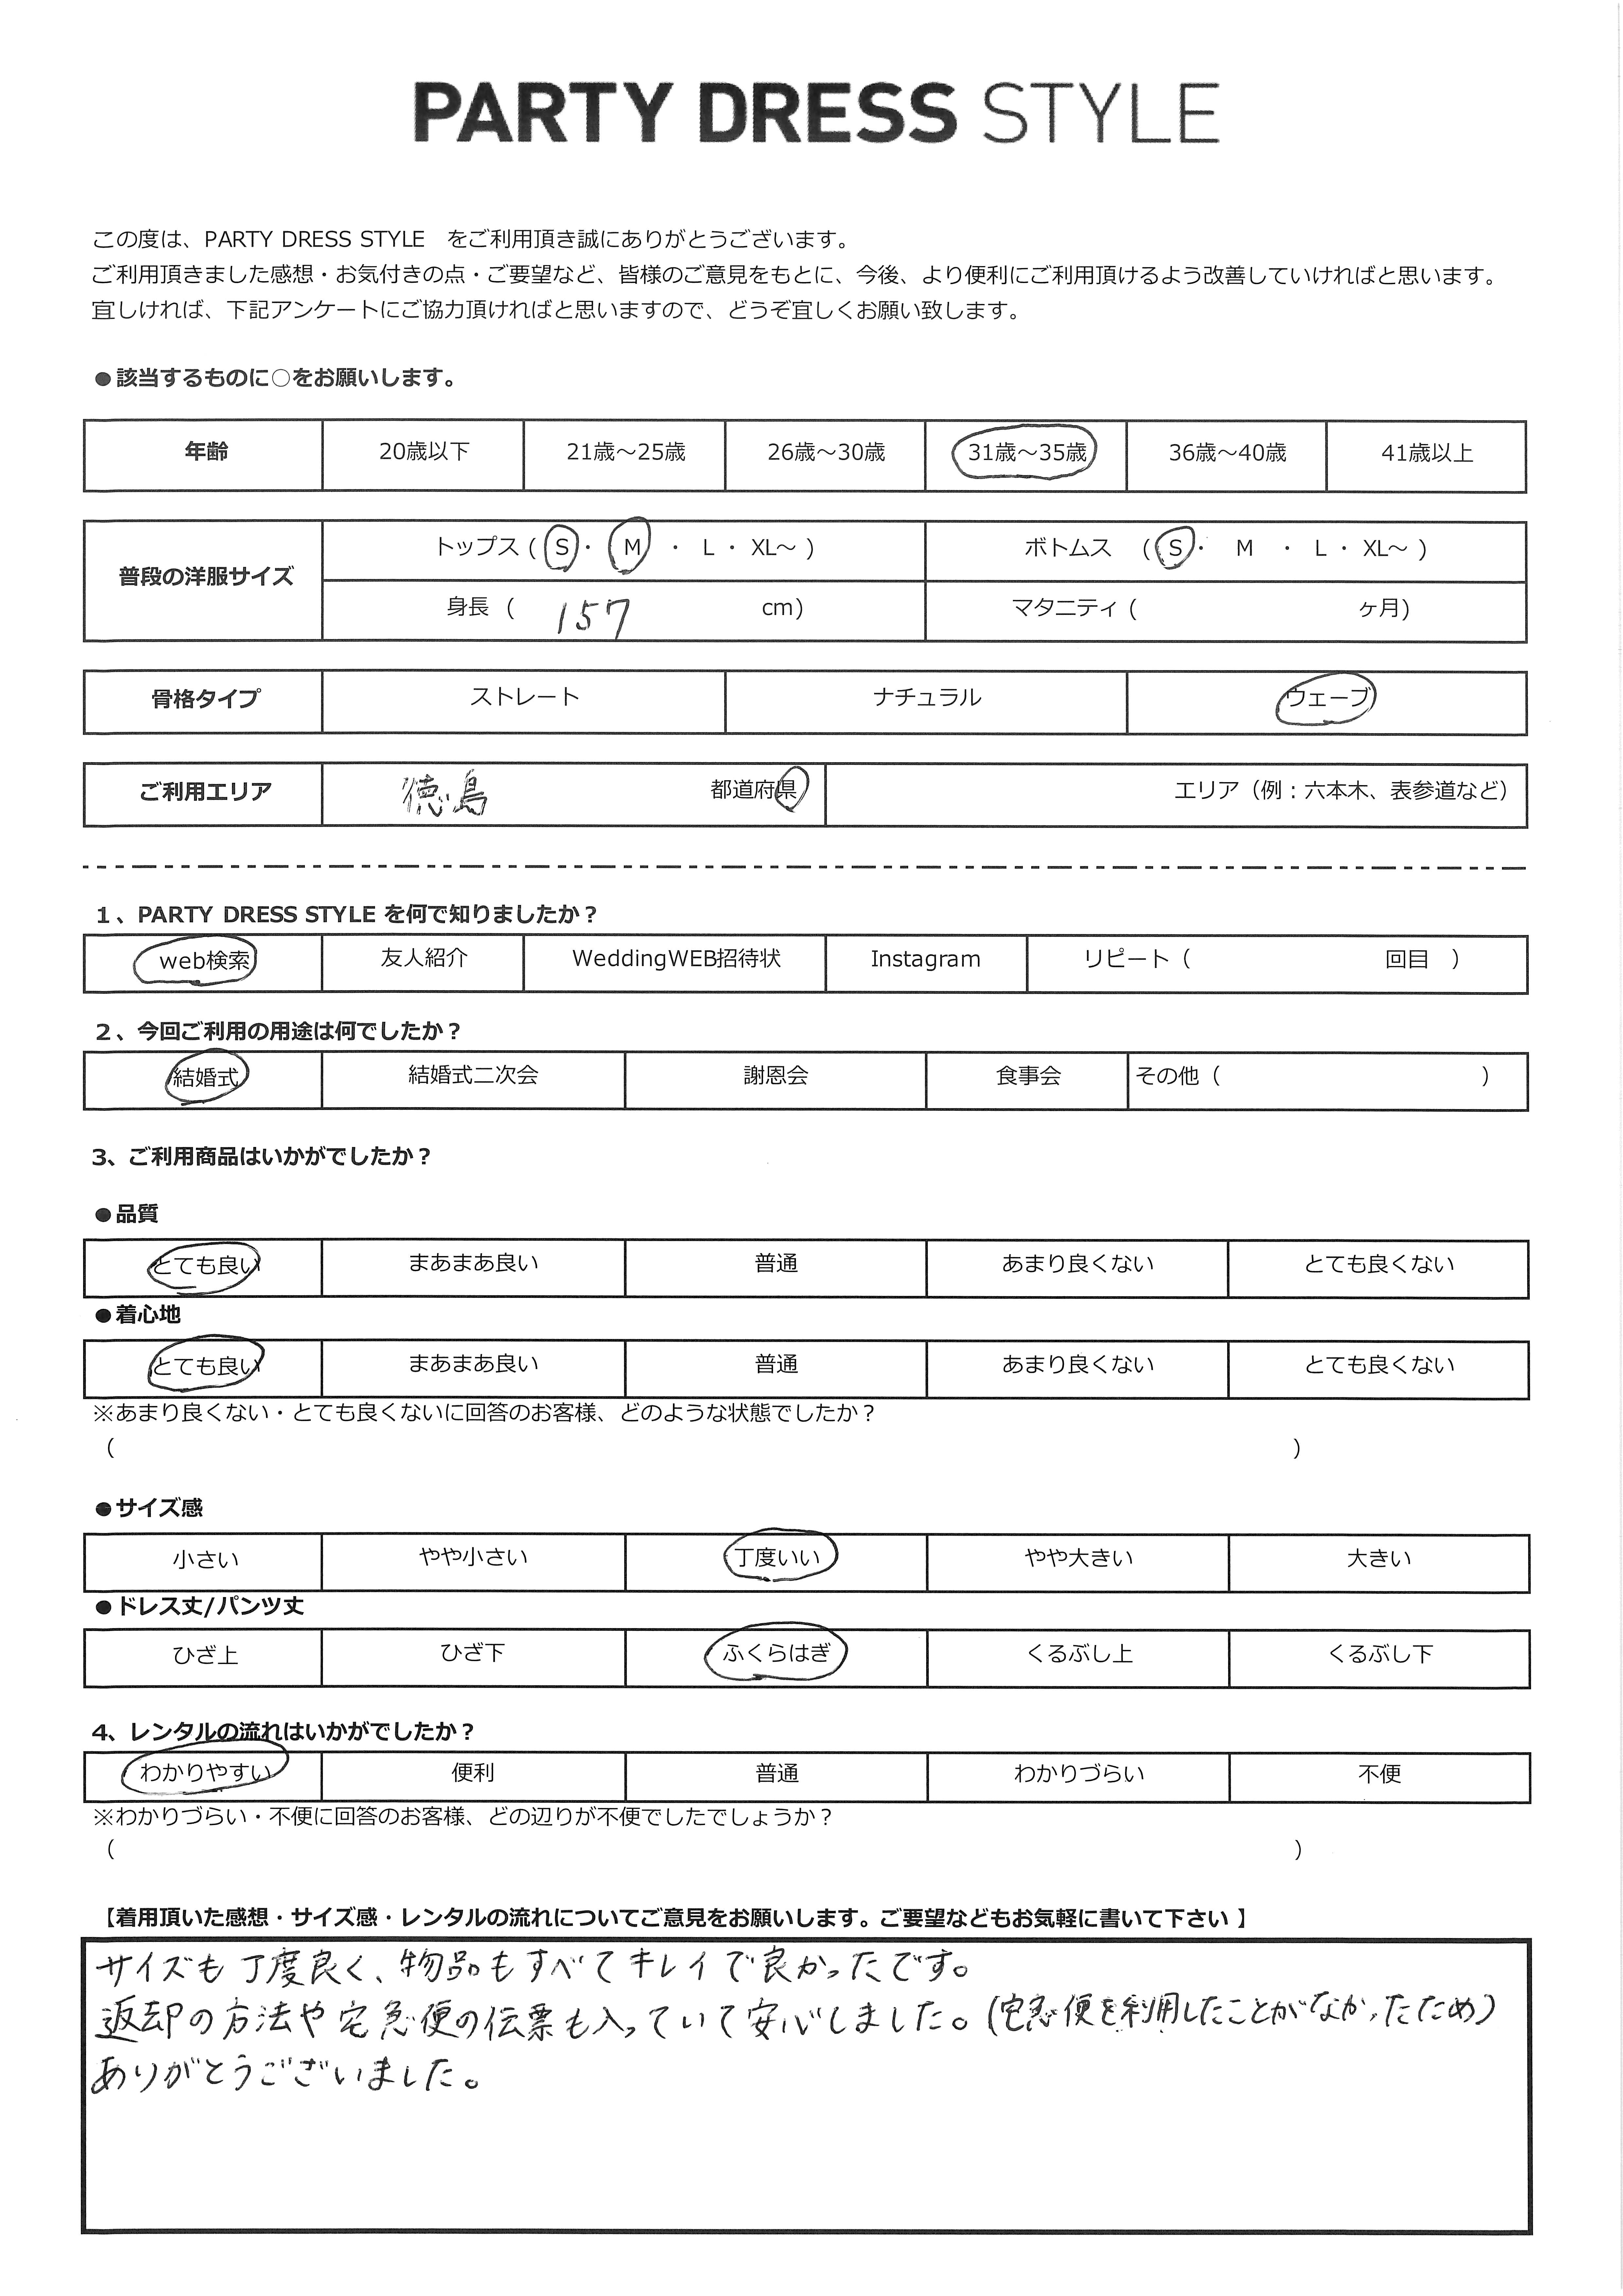 PARTY DRESS STYLE
この度は、PARTY DRESS STYLE をご利用頂き誠にありがとうございます。
ご利用頂きました感想・お気付きの点・ご要望など、皆様のご意見をもとに、今後、より便利にご利用頂けるよう改善していければと思います。
宜しければ、下記アンケートにご協力頂ければと思いますので、どうぞ宜しくお願い致します。
●該当するものに○をお願いします。
年齢 20歳以下 21歳～25歳 26歳～30歳 31歳～35歳 36歳～40歳 41歳以上
普段の洋服サイズ
トップス ( S ・ M ・ L ・ XL～ ) ボトムス ( S ・ M ・ L ・ XL～ )
身長 ( 157 cm) マタニティ ( ヶ月)
骨格タイプ ストレート ナチュラル ウェーブ
ご利用エリア 徳島 都道府県 エリア（例：六本木、表参道など）
1、PARTY DRESS STYLE を何で知りましたか？
web検索 友人紹介 WeddingWEB招待状 Instagram リピート（ 回目 ）
2、今回ご利用の用途は何でしたか？
結婚式 結婚式二次会 謝恩会 食事会 その他（ ）
3、ご利用商品はいかがでしたか？
●品質
とても良い まあまあ良い 普通 あまり良くない とても良くない
●着心地
とても良い まあまあ良い 普通 あまり良くない とても良くない
※あまり良くない・とても良くないに回答のお客様、どのような状態でしたか？
（ ）
●サイズ感
小さい やや小さい 丁度いい やや大きい 大きい
●ドレス丈/パンツ丈
ひざ上 ひざ下 ふくらはぎ くるぶし上 くるぶし下
4、レンタルの流れはいかがでしたか？
わかりやすい 便利 普通 わかりづらい 不便
※わかりづらい・不便に回答のお客様、どの辺りが不便でしたでしょうか？
（ ）
【着用頂いた感想・サイズ感・レンタルの流れについてご意見をお願いします。ご要望などもお気軽に書いて下さい 】
サイズも丁度良く、物品もすべてキレイで良かったです。
返却の方法や宅急便の伝票も入っていて安心しました。(宅急便を利用したことがなかったため)
ありがとうございました。